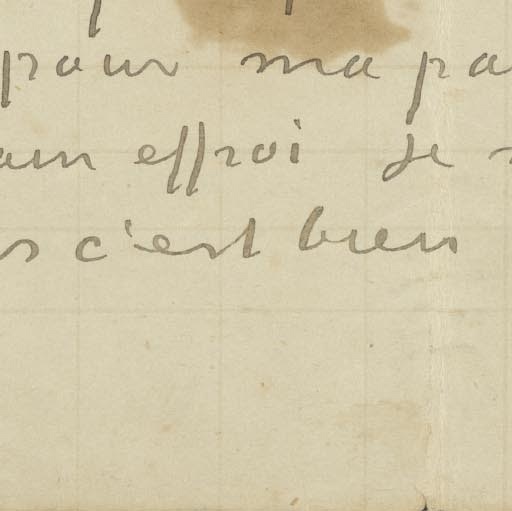 pour ma pa
aun effroi Je
s c'est bien